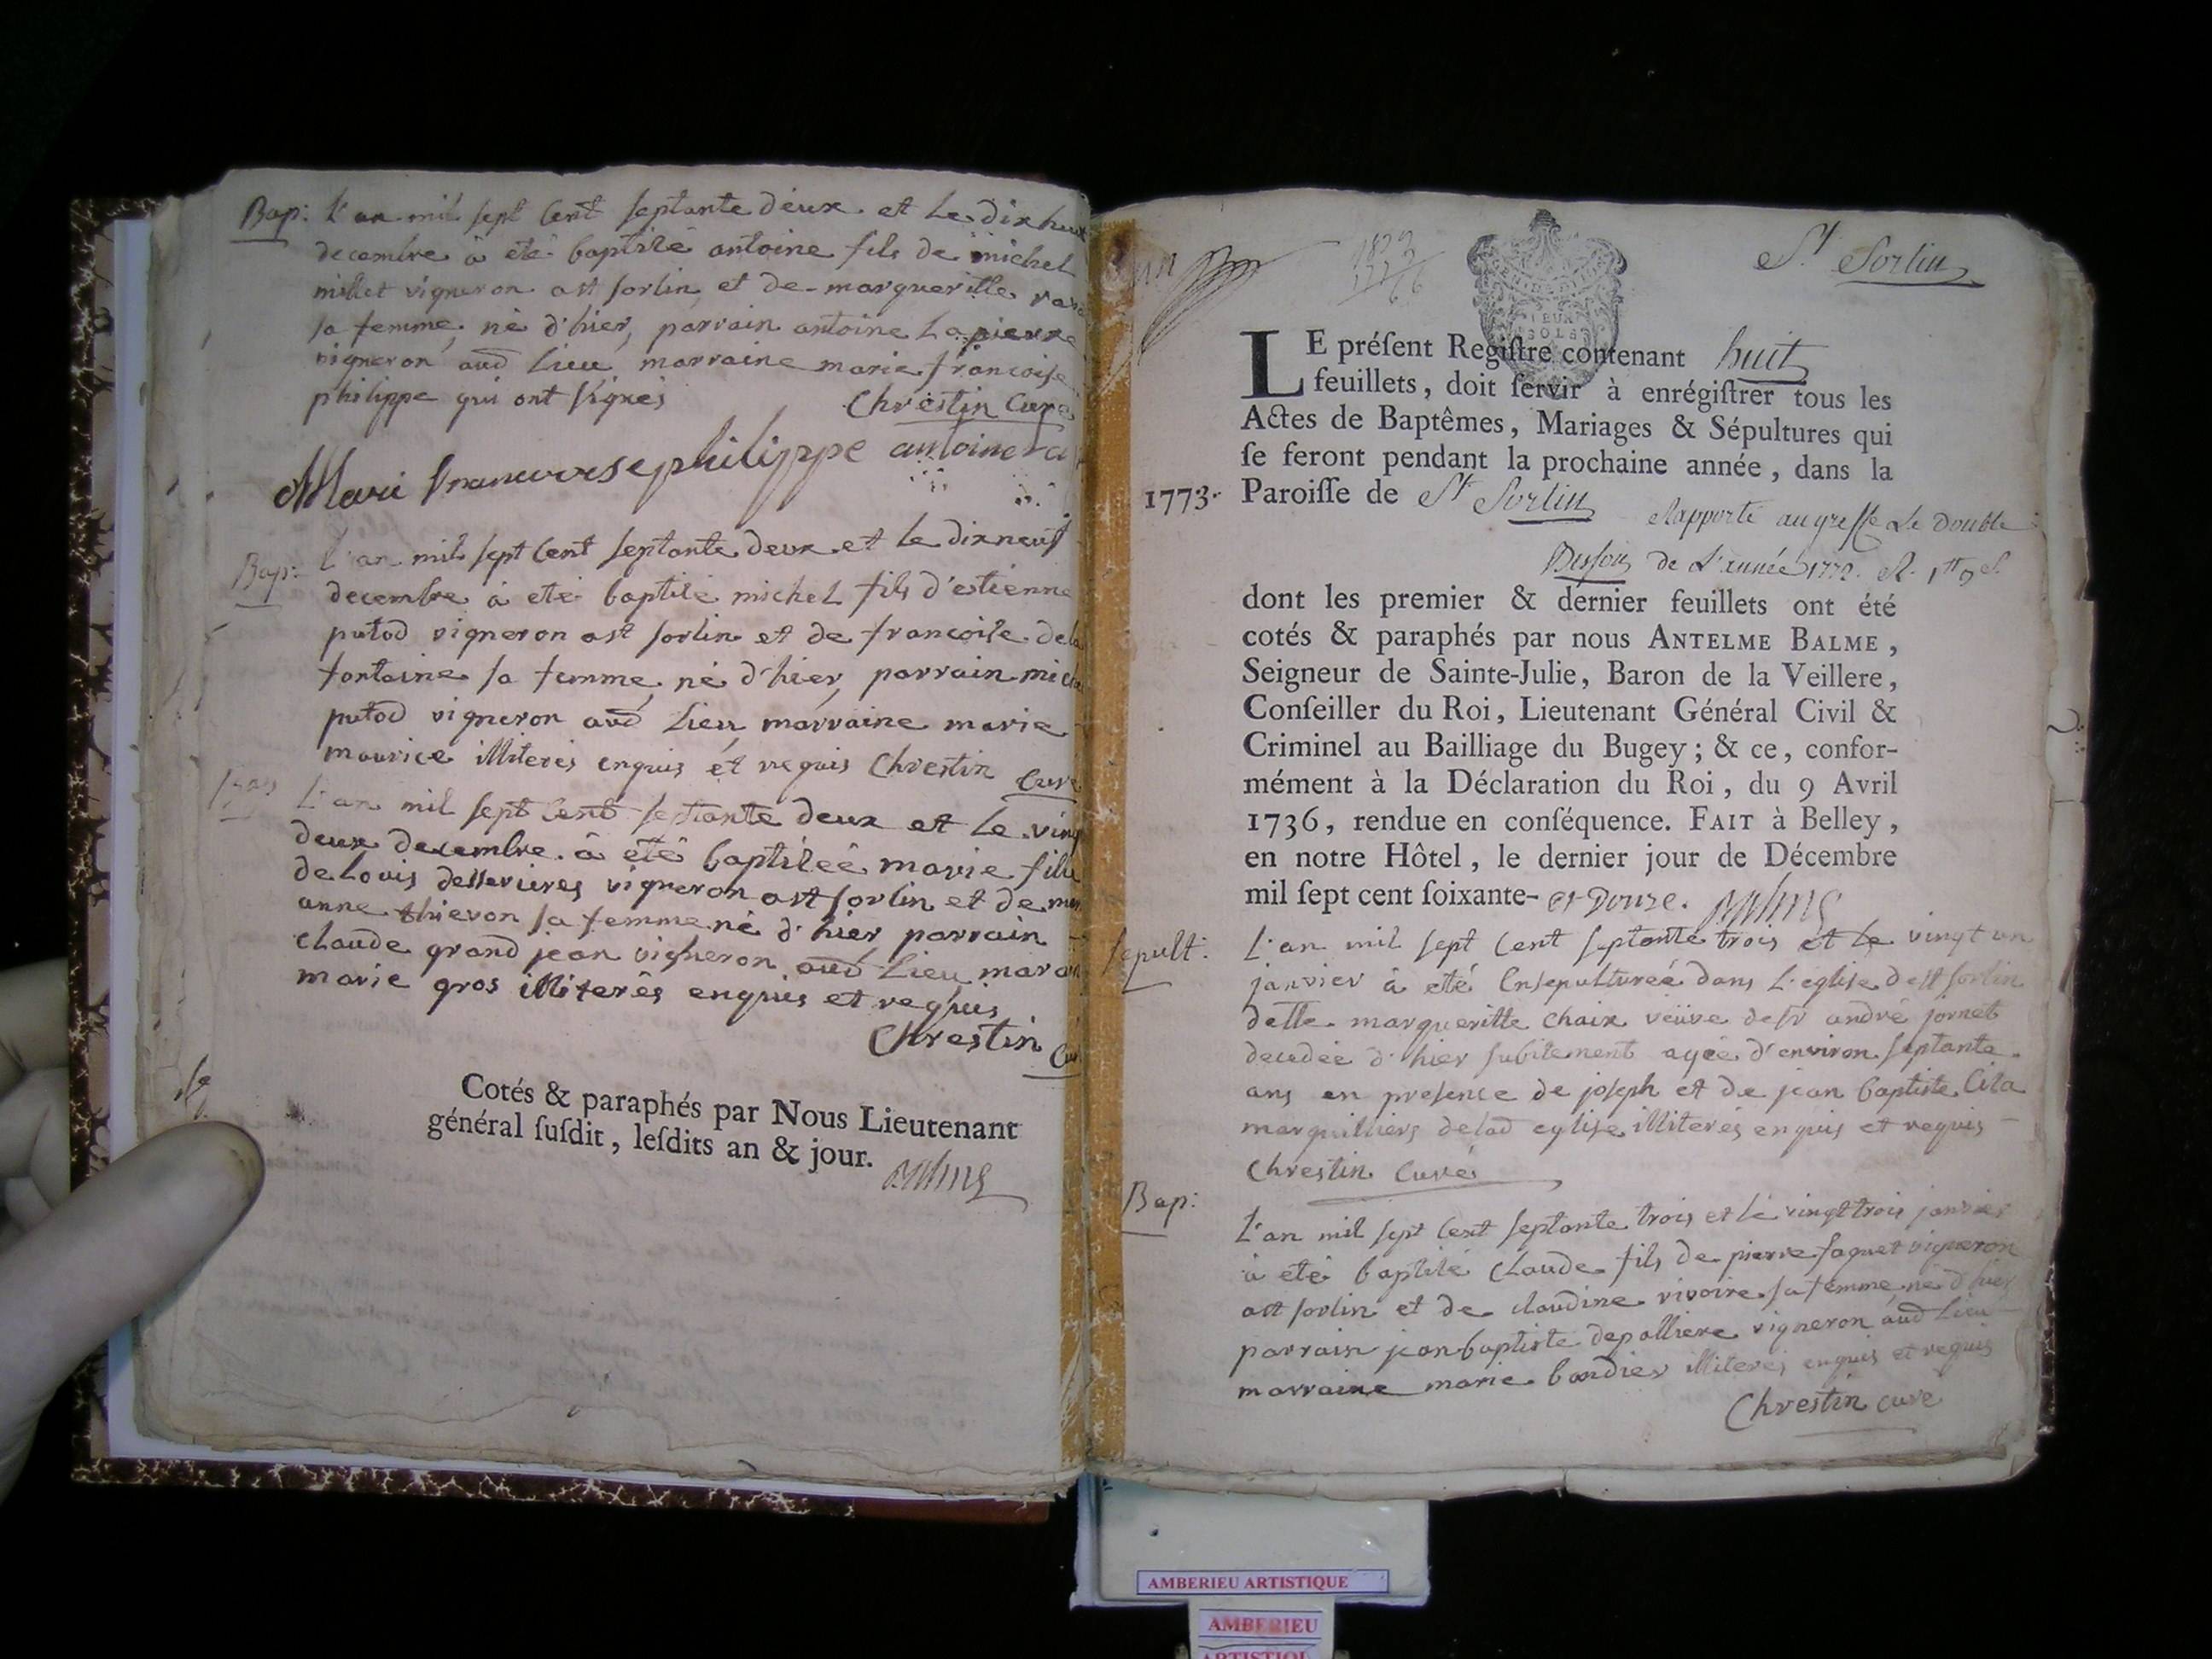 Bap: L'an mil sept Cent septante deux et le dixhuit
decembre à eté baptisé antoine fils de michel
millet vigneron a st sorlin et de margueritte
sa femme, né d'hier, parrain antoine Lapierre
vigneron aud lieu marraine marie françoise
philippe qui ont signés Chrestin Curé
Marie francoise philippe antoine la
Bap: L'an mil sept Cent septante deux et le dixneuf
decembre à eté baptisé michel fils d'estienne
putod vigneron a st sorlin et de françoise dela
fontaine sa femme, né d'hier, parrain michel
putod vigneron aud lieu, marraine marie
maurice illiterés enquis et requis Chrestin Curé
Bap L'an mil sept Cent septante deux et le vingt
deux decembre à eté baptiseé marie fille
de Louis desserures vigneron a st sorlin et de
anne thievon sa femme né d'hier parrain
claude grand jean vigneron aud lieu
marie gros illiterés enquis et requis
Chrestin Curé
Cotés & paraphés par Nous Lieutenant
général ſuſdit, leſdits an & jour. Balme
St Sorlin
LE préſent Regiſtre contenant huit
feuillets, doit ſervir à enrégiſtrer tous les
Actes de Baptêmes, Mariages & Sépultures qui
ſe feront pendant la prochaine année, dans la
1773. Paroiſſe de St Sorlin Rapporté au greffe Le Double
de L'année 1772.
dont les premier & dernier feuillets ont été
cotés & paraphés par nous ANTELME BALME,
Seigneur de Sainte-Julie, Baron de la Veillere,
Conſeiller du Roi, Lieutenant Général Civil &
Criminel au Bailliage du Bugey; & ce, confor-
mément à la Déclaration du Roi, du 9 Avril
1736, rendue en conſéquence. FAIT à Belley,
en notre Hôtel, le dernier jour de Décembre
mil ſept cent ſoixante- et Douze. Balme
sepult: L'an mil sept Cent septante trois et le vingt un
janvier à eté Ensepultureé dans L'eglise de st sorlin
delle margueritte chaix veüve de sr andré jornet
decedeé d'hier subitement ageé d'environ septante
ans en presence de joseph et de jean baptiste Cila
marguilliers de lad eglise illiterés enquis et requis
Chrestin Curé
Bap: L'an mil sept Cent septante trois et le vingt trois janvier
à eté baptisé Claude fils de pierre faguet vigneron
a st sorlin et de claudine vivoire sa femme, né d'hier
parrain jean baptiste depalliere vigneron aud lieu
marraine marie bondier illiterés enquis et requis
Chrestin curé
AMBERIEU ARTISTIQUE
AMBERIEU
ARTISTIQUE